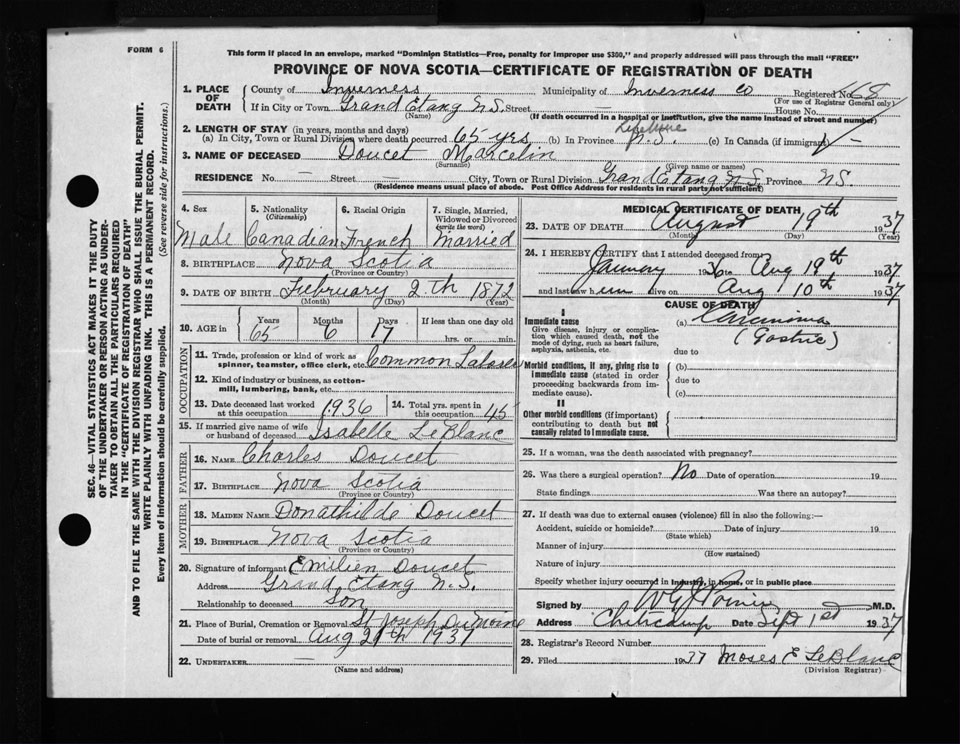 FORM 6
This form if placed in an envelope, marked "Dominion Statistics—Free, penalty for improper use $300," and properly addressed will pass through the mail "FREE"
PROVINCE OF NOVA SCOTIA—CERTIFICATE OF REGISTRATION OF DEATH
SEC. 46—VITAL STATISTICS ACT MAKES IT THE DUTY
OF THE UNDERTAKER OR PERSON ACTING AS UNDER-
TAKER TO OBTAIN ALL THE PARTICULARS REQUIRED
IN THE "CERTIFICATE OF REGISTRATION OF DEATH"
AND TO FILE THE SAME WITH THE DIVISION REGISTRAR WHO SHALL ISSUE THE BURIAL PERMIT.
WRITE PLAINLY WITH UNFADING INK. THIS IS A PERMANENT RECORD.
Every item of information should be carefully supplied. (See reverse side for instructions.)
1. PLACE OF DEATH County of Inverness Municipality of Inverness Co Registered No. 68
(For use of Registrar General only)
If in City or Town Grand Etang N.S. Street — House No.
(Name) (If death occurred in a hospital or institution, give the name instead of street and number)
2. LENGTH OF STAY (in years, months and days)
(a) In City, Town or Rural Division where death occurred 65 yrs (b) In Province N.S. (c) In Canada (if immigrant) —
3. NAME OF DECEASED Doucet Marcelin
(Surname) (Given name or names)
RESIDENCE No. — Street — City, Town or Rural Division Grand Etang N.S. Province N.S.
(Residence means usual place of abode. Post Office Address for residents in rural parts not sufficient)
4. Sex Male
5. Nationality (Citizenship) Canadian
6. Racial Origin French
7. Single, Married, Widowed or Divorced (write the word) Married
8. BIRTHPLACE Nova Scotia
(Province or Country)
9. DATE OF BIRTH February 2th 1872
(Month) (Day) (Year)
10. AGE in Years 65 Months 6 Days 17 If less than one day old hrs. or min.
OCCUPATION
11. Trade, profession or kind of work as spinner, teamster, office clerk, etc. Common Laborer
12. Kind of industry or business, as cotton-mill, lumbering, bank, etc.
13. Date deceased last worked at this occupation 1936
14. Total yrs. spent in this occupation 45
15. If married give name of wife or husband of deceased Isabelle LeBlanc
FATHER
16. NAME Charles Doucet
17. BIRTHPLACE Nova Scotia
(Province or Country)
MOTHER
18. MAIDEN NAME Donathilde Doucet
19. BIRTHPLACE Nova Scotia
(Province or Country)
20. Signature of informant Emilien Doucet
Address Grand Etang N.S.
Relationship to deceased Son
21. Place of Burial, Cremation or Removal St Joseph Du Moine
Date of burial or removal Aug 21th 1937
22. UNDERTAKER —
(Name and address)
MEDICAL CERTIFICATE OF DEATH
23. DATE OF DEATH August 19th 1937
(Month) (Day) (Year)
24. I HEREBY CERTIFY that I attended deceased from:
January 1936 to Aug 19th 1937
and last saw him alive on Aug 10th 1937
CAUSE OF DEATH
I
Immediate cause
Give disease, injury or complication which caused death, not the mode of dying, such as heart failure, asphyxia, asthenia, etc.
(a) Carcinoma
(Gastric)
due to
Morbid conditions, if any, giving rise to immediate cause (stated in order proceeding backwards from immediate cause).
(b)
due to
(c)
II
Other morbid conditions (if important) contributing to death but not causally related to immediate cause.
25. If a woman, was the death associated with pregnancy?
26. Was there a surgical operation? No Date of operation 19
State findings Was there an autopsy?
27. If death was due to external causes (violence) fill in also the following:—
Accident, suicide or homicide? Date of injury 19
(State which)
Manner of injury
(How sustained)
Nature of injury
Specify whether injury occurred in industry, in home, or in public place
Signed by M.D.
Address Cheticamp Date Sept 1st 1937
28. Registrar's Record Number
29. Filed 1937 Moses E LeBlanc
(Division Registrar)